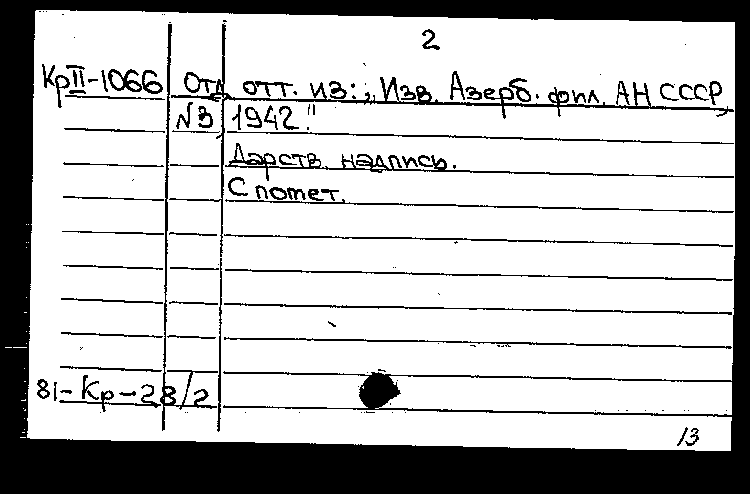 2
КрII-1066 Отд. отт. из: „Изв. Азерб. фил. АН СССР,
№3, 1942."
Дарств. надпись.
С помет.
81-Кр-28/2
13